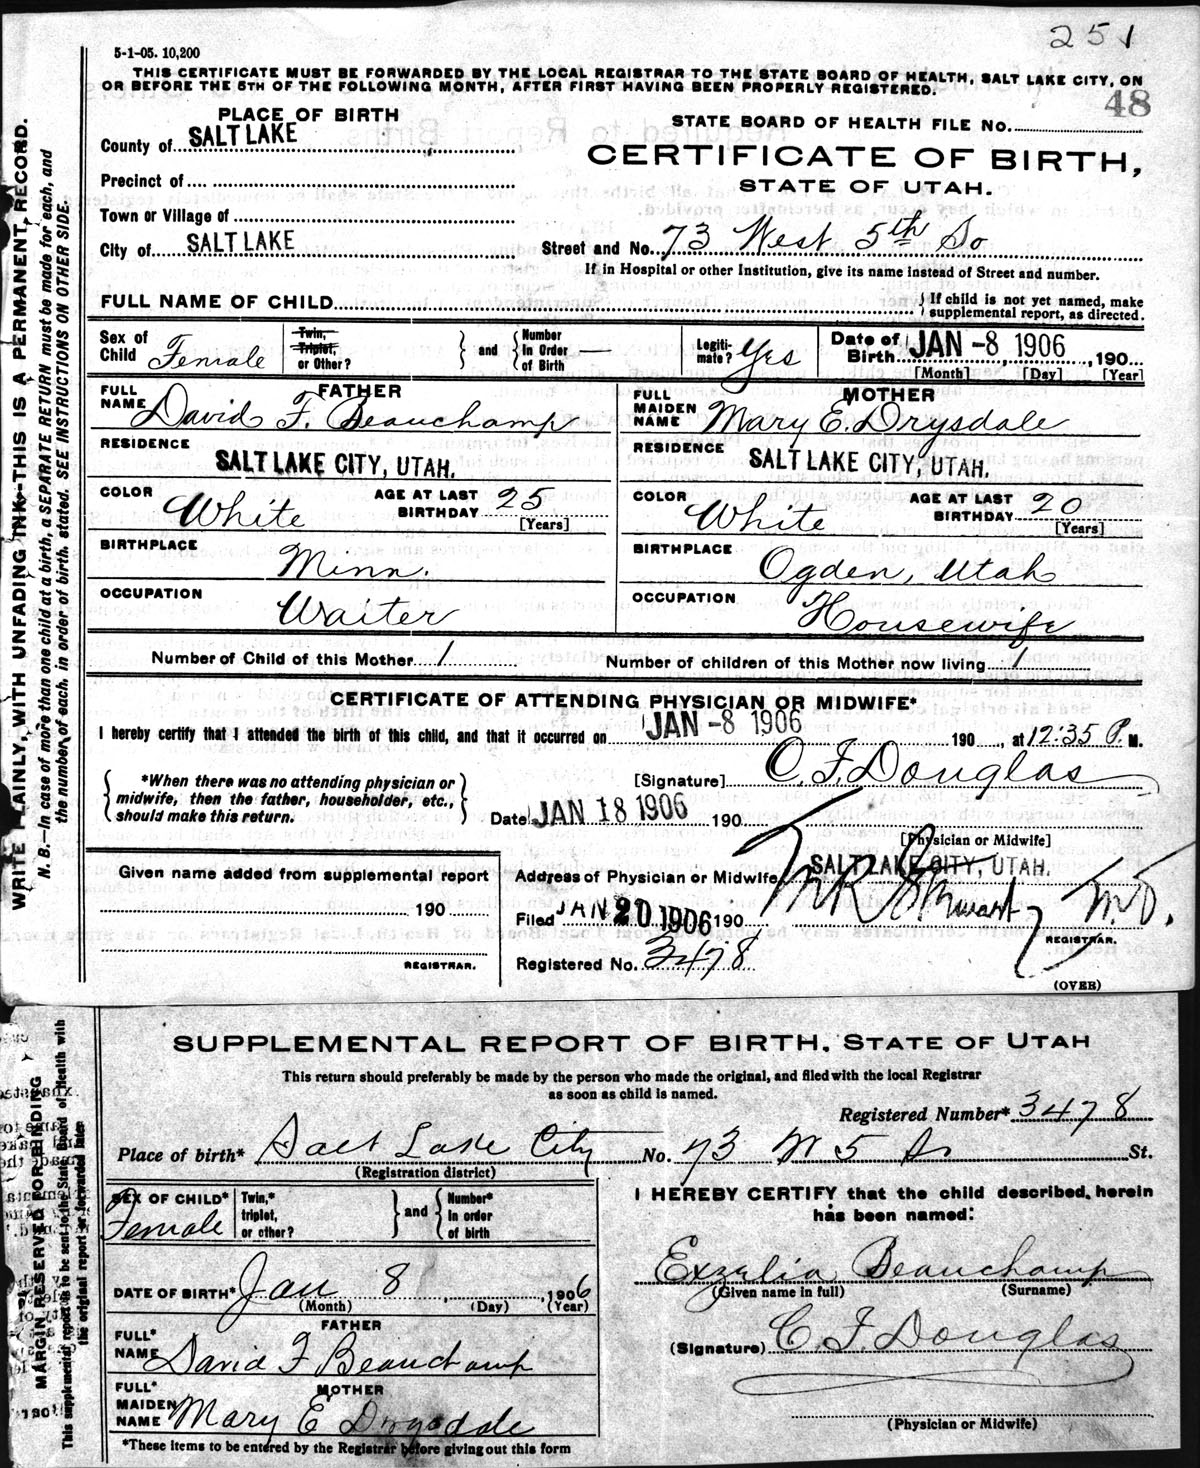 251
5-1-05. 10,200
THIS CERTIFICATE MUST BE FORWARDED BY THE LOCAL REGISTRAR TO THE STATE BOARD OF HEALTH, SALT LAKE CITY, ON
OR BEFORE THE 5TH OF THE FOLLOWING MONTH, AFTER FIRST HAVING BEEN PROPERLY REGISTERED.
48
PLACE OF BIRTH
STATE BOARD OF HEALTH FILE No.
County of SALT LAKE
CERTIFICATE OF BIRTH,
STATE OF UTAH.
Precinct of
Town or Village of
City of SALT LAKE
Street and No. 73 West 5th So
If in Hospital or other Institution, give its name instead of Street and number.
FULL NAME OF CHILD
If child is not yet named, make
supplemental report, as directed.
Sex of Child Female
Twin, Triplet, or Other?
and
Number In Order of Birth —
Legiti-mate? Yes
Date of Birth JAN -8 1906, 190
[Month] [Day] [Year]
FATHER
FULL NAME David F. Beauchamp
MOTHER
FULL MAIDEN NAME Mary E. Drysdale
RESIDENCE SALT LAKE CITY, UTAH.
RESIDENCE SALT LAKE CITY, UTAH.
COLOR White
AGE AT LAST BIRTHDAY 25 [Years]
COLOR White
AGE AT LAST BIRTHDAY 20 [Years]
BIRTHPLACE Minn.
BIRTHPLACE Ogden, Utah
OCCUPATION Waiter
OCCUPATION Housewife
Number of Child of this Mother 1
Number of children of this Mother now living 1
CERTIFICATE OF ATTENDING PHYSICIAN OR MIDWIFE*
I hereby certify that I attended the birth of this child, and that it occurred on JAN -8 1906 190, at 12:35 P. M.
*When there was no attending physician or
midwife, then the father, householder, etc.,
should make this return.
[Signature] C. F. Douglas
Date JAN 18 1906 190
[Physician or Midwife]
Given name added from supplemental report
190
REGISTRAR.
Address of Physician or Midwife SALT LAKE CITY, UTAH.
Filed JAN 20 1906 190
M.D.
REGISTRAR.
Registered No. 3478
(OVER)
WRITE PLAINLY, WITH UNFADING INK—THIS IS A PERMANENT RECORD.
N. B.—In case of more than one child at a birth, a SEPARATE RETURN must be made for each, and
the number of each, in order of birth, stated. SEE INSTRUCTIONS ON OTHER SIDE.
SUPPLEMENTAL REPORT OF BIRTH. STATE OF UTAH
This return should preferably be made by the person who made the original, and filed with the local Registrar
as soon as child is named.
Registered Number* 3478
Place of birth* Salt Lake City No. 73 W 5 So St.
(Registration district)
SEX OF CHILD* Female
Twin,* triplet, or other?
and
Number* In order of birth
I HEREBY CERTIFY that the child described, herein
has been named:
DATE OF BIRTH* Jan 8, 1906
(Month) (Day) (Year)
Exzelia Beauchamp
(Given name in full) (Surname)
FATHER
FULL* NAME David F Beauchamp
(Signature) C. F. Douglas
MOTHER
FULL* MAIDEN NAME Mary E Drysdale
(Physician or Midwife)
*These items to be entered by the Registrar before giving out this form
MARGIN RESERVED FOR BINDING
This supplemental report is to be sent to the State Board of Health with
the original report or forwarded later